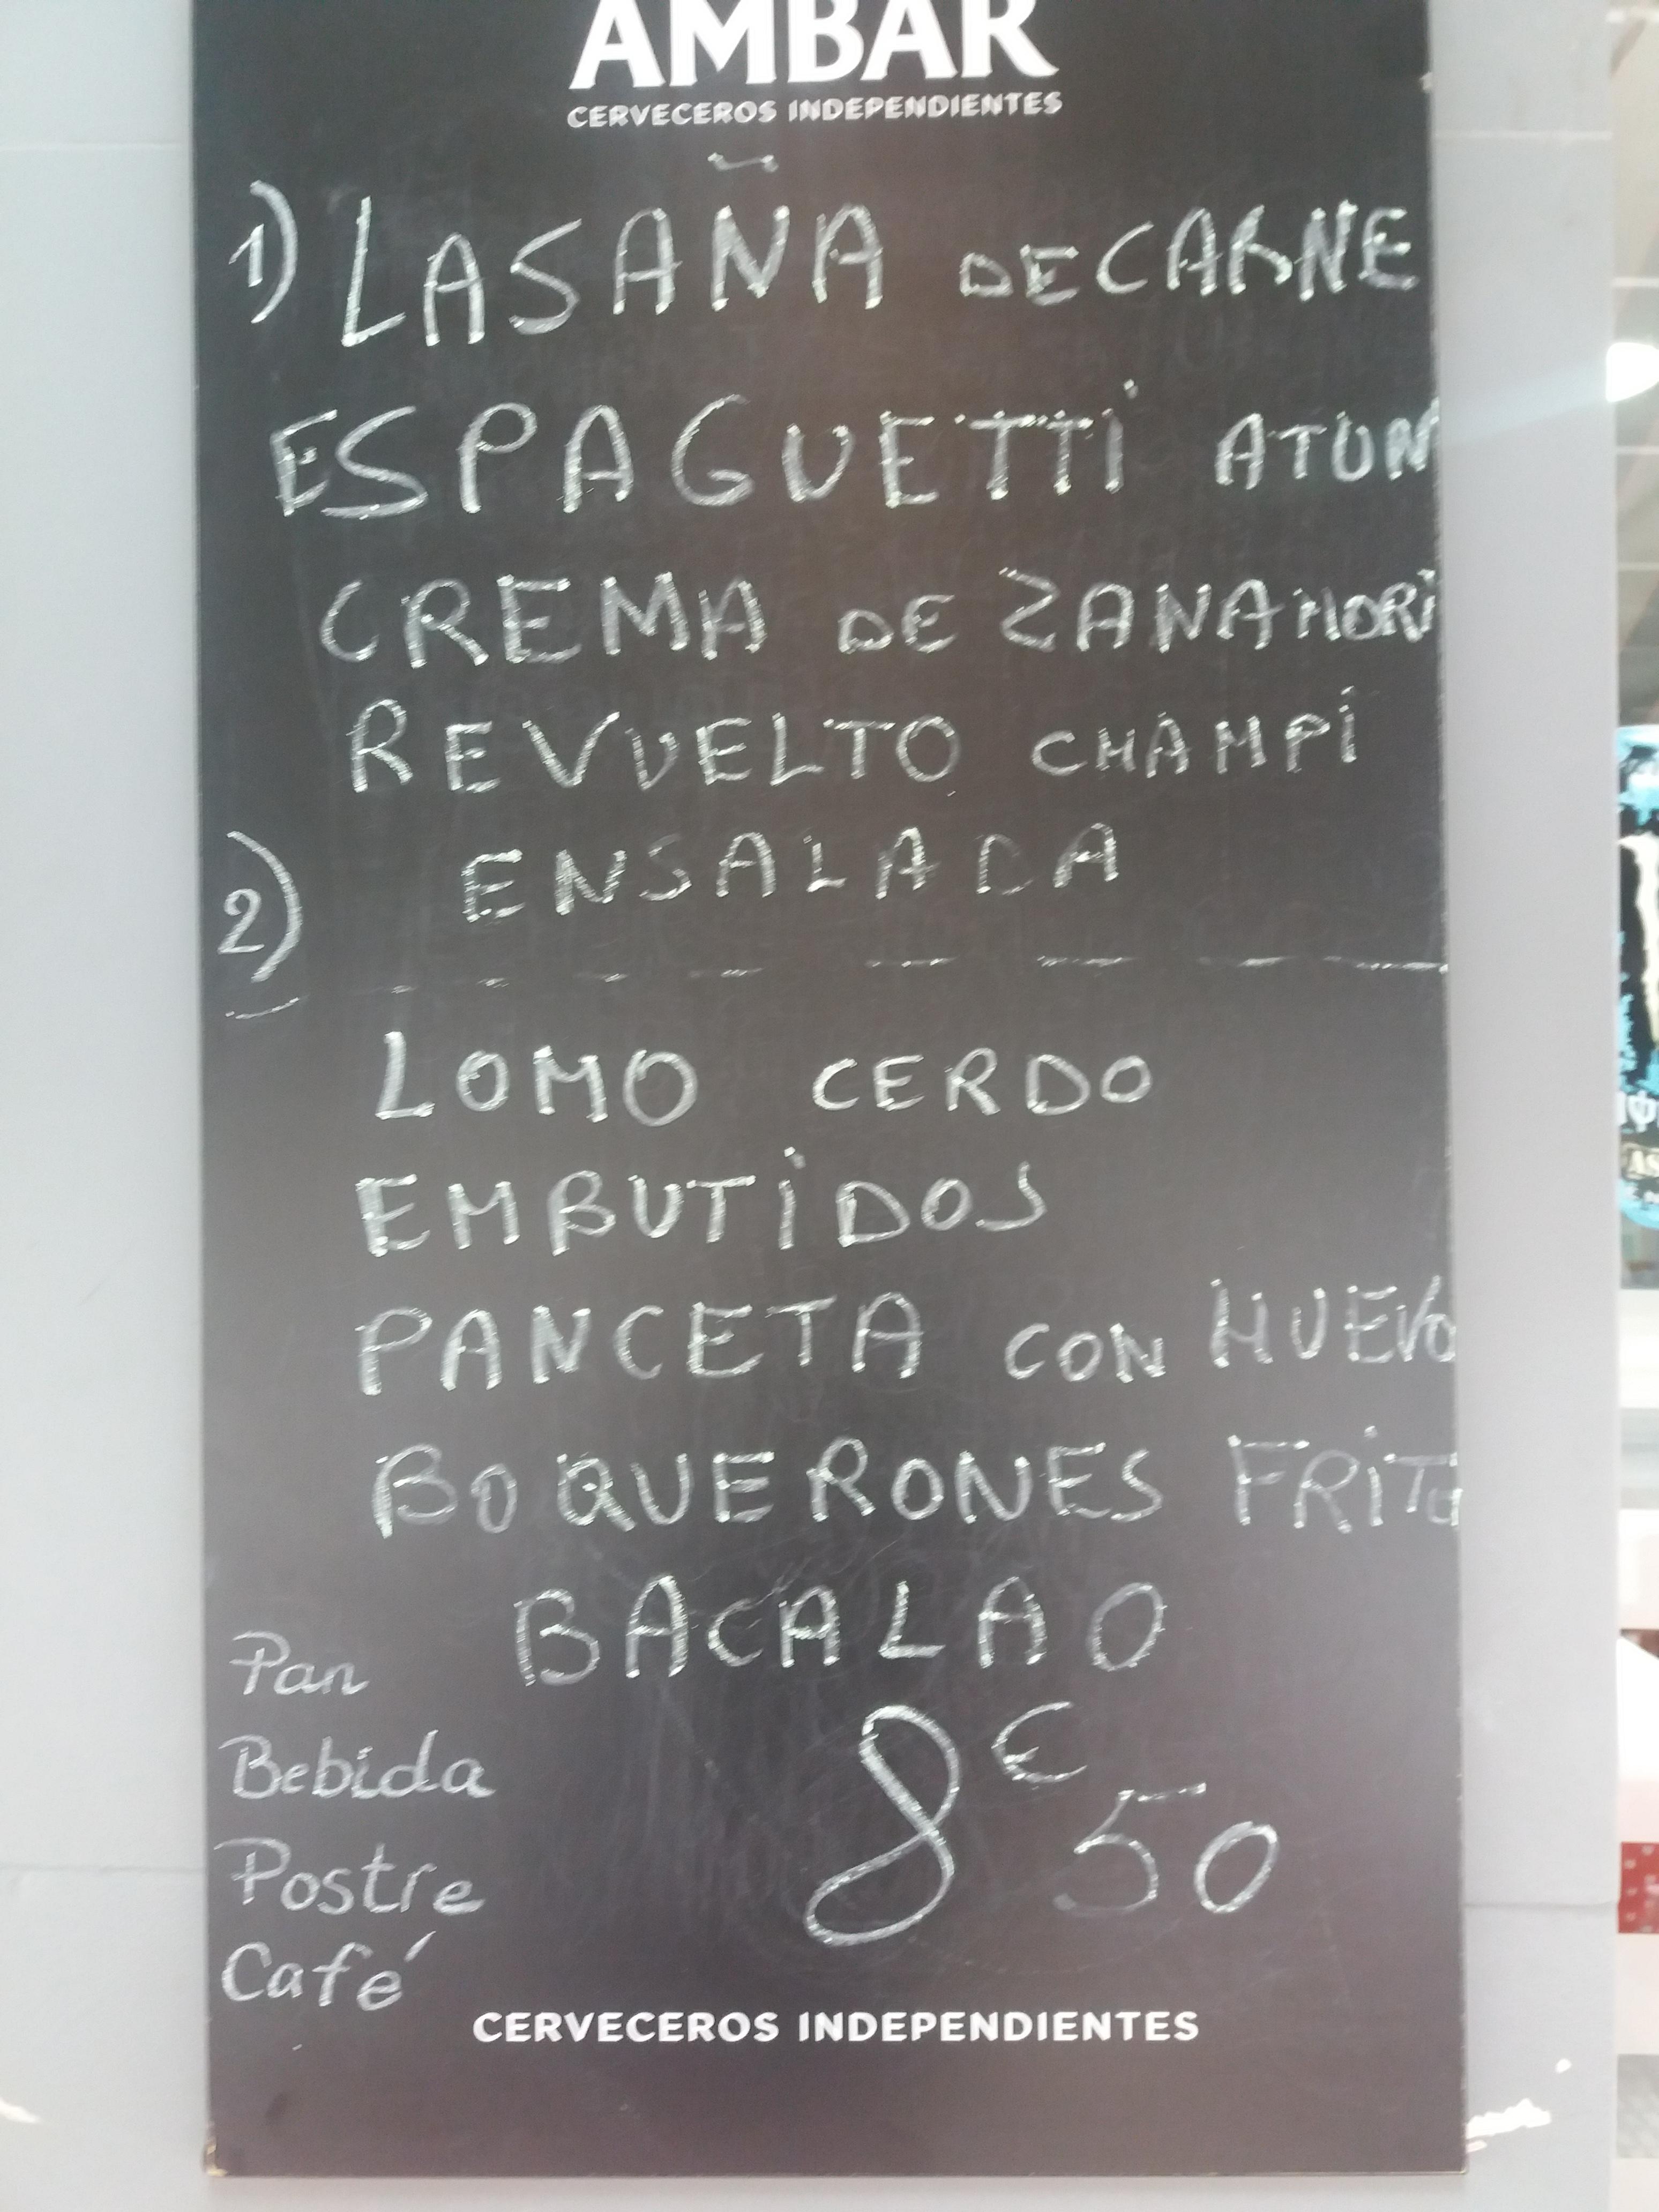 AMBAR
CERVECEROS INDEPENDIENTES
1) LASAÑA DE CARNE
ESPAGUETTI ATUN
CREMA DE ZANAHORI
REVUELTO CHAMPI
ENSALADA
2)
LOMO CERDO
EMBUTIDOS
PANCETA CON HUEVO
BOQUERONES FRITO
BACALAO
Pan
Bebida
Postre
Café
8€50
CERVECEROS INDEPENDIENTES